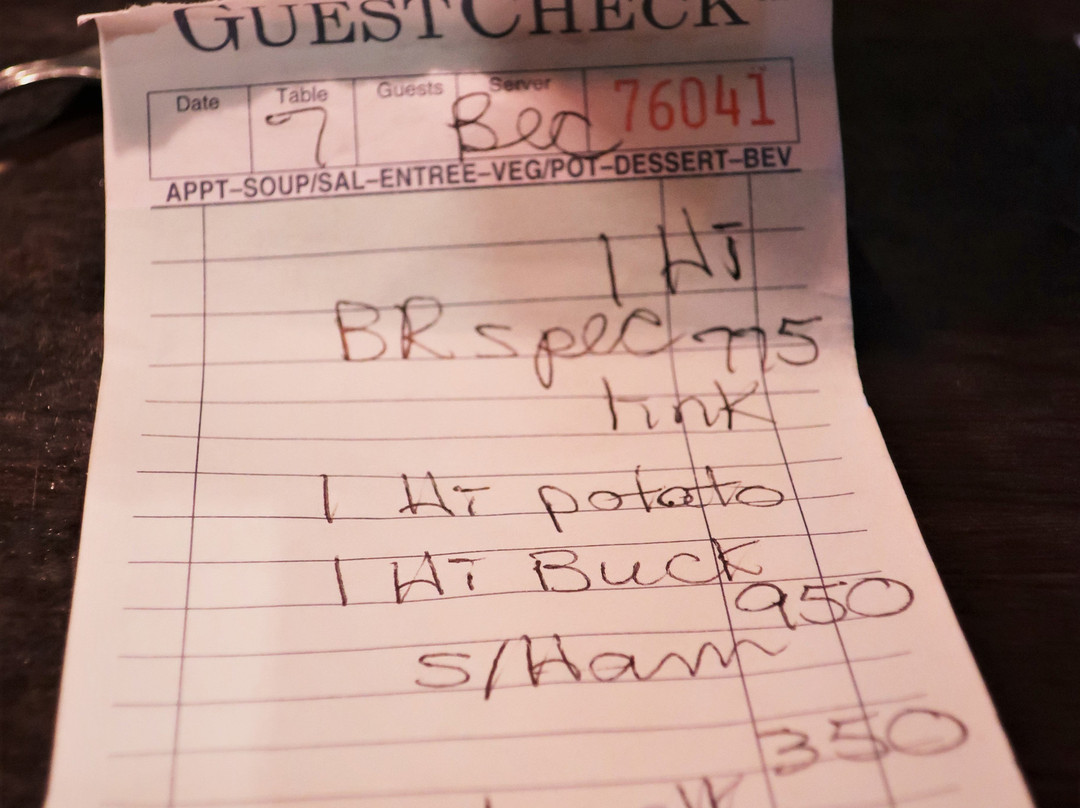 GUESTCHECK
Date Table Guests Server 76041
7
APPT–SOUP/SAL–ENTREE–VEG/POT–DESSERT–BEV
1 HT
BR spec 775
link
1 HT potato
1 HT Buck
950
s/Ham
350